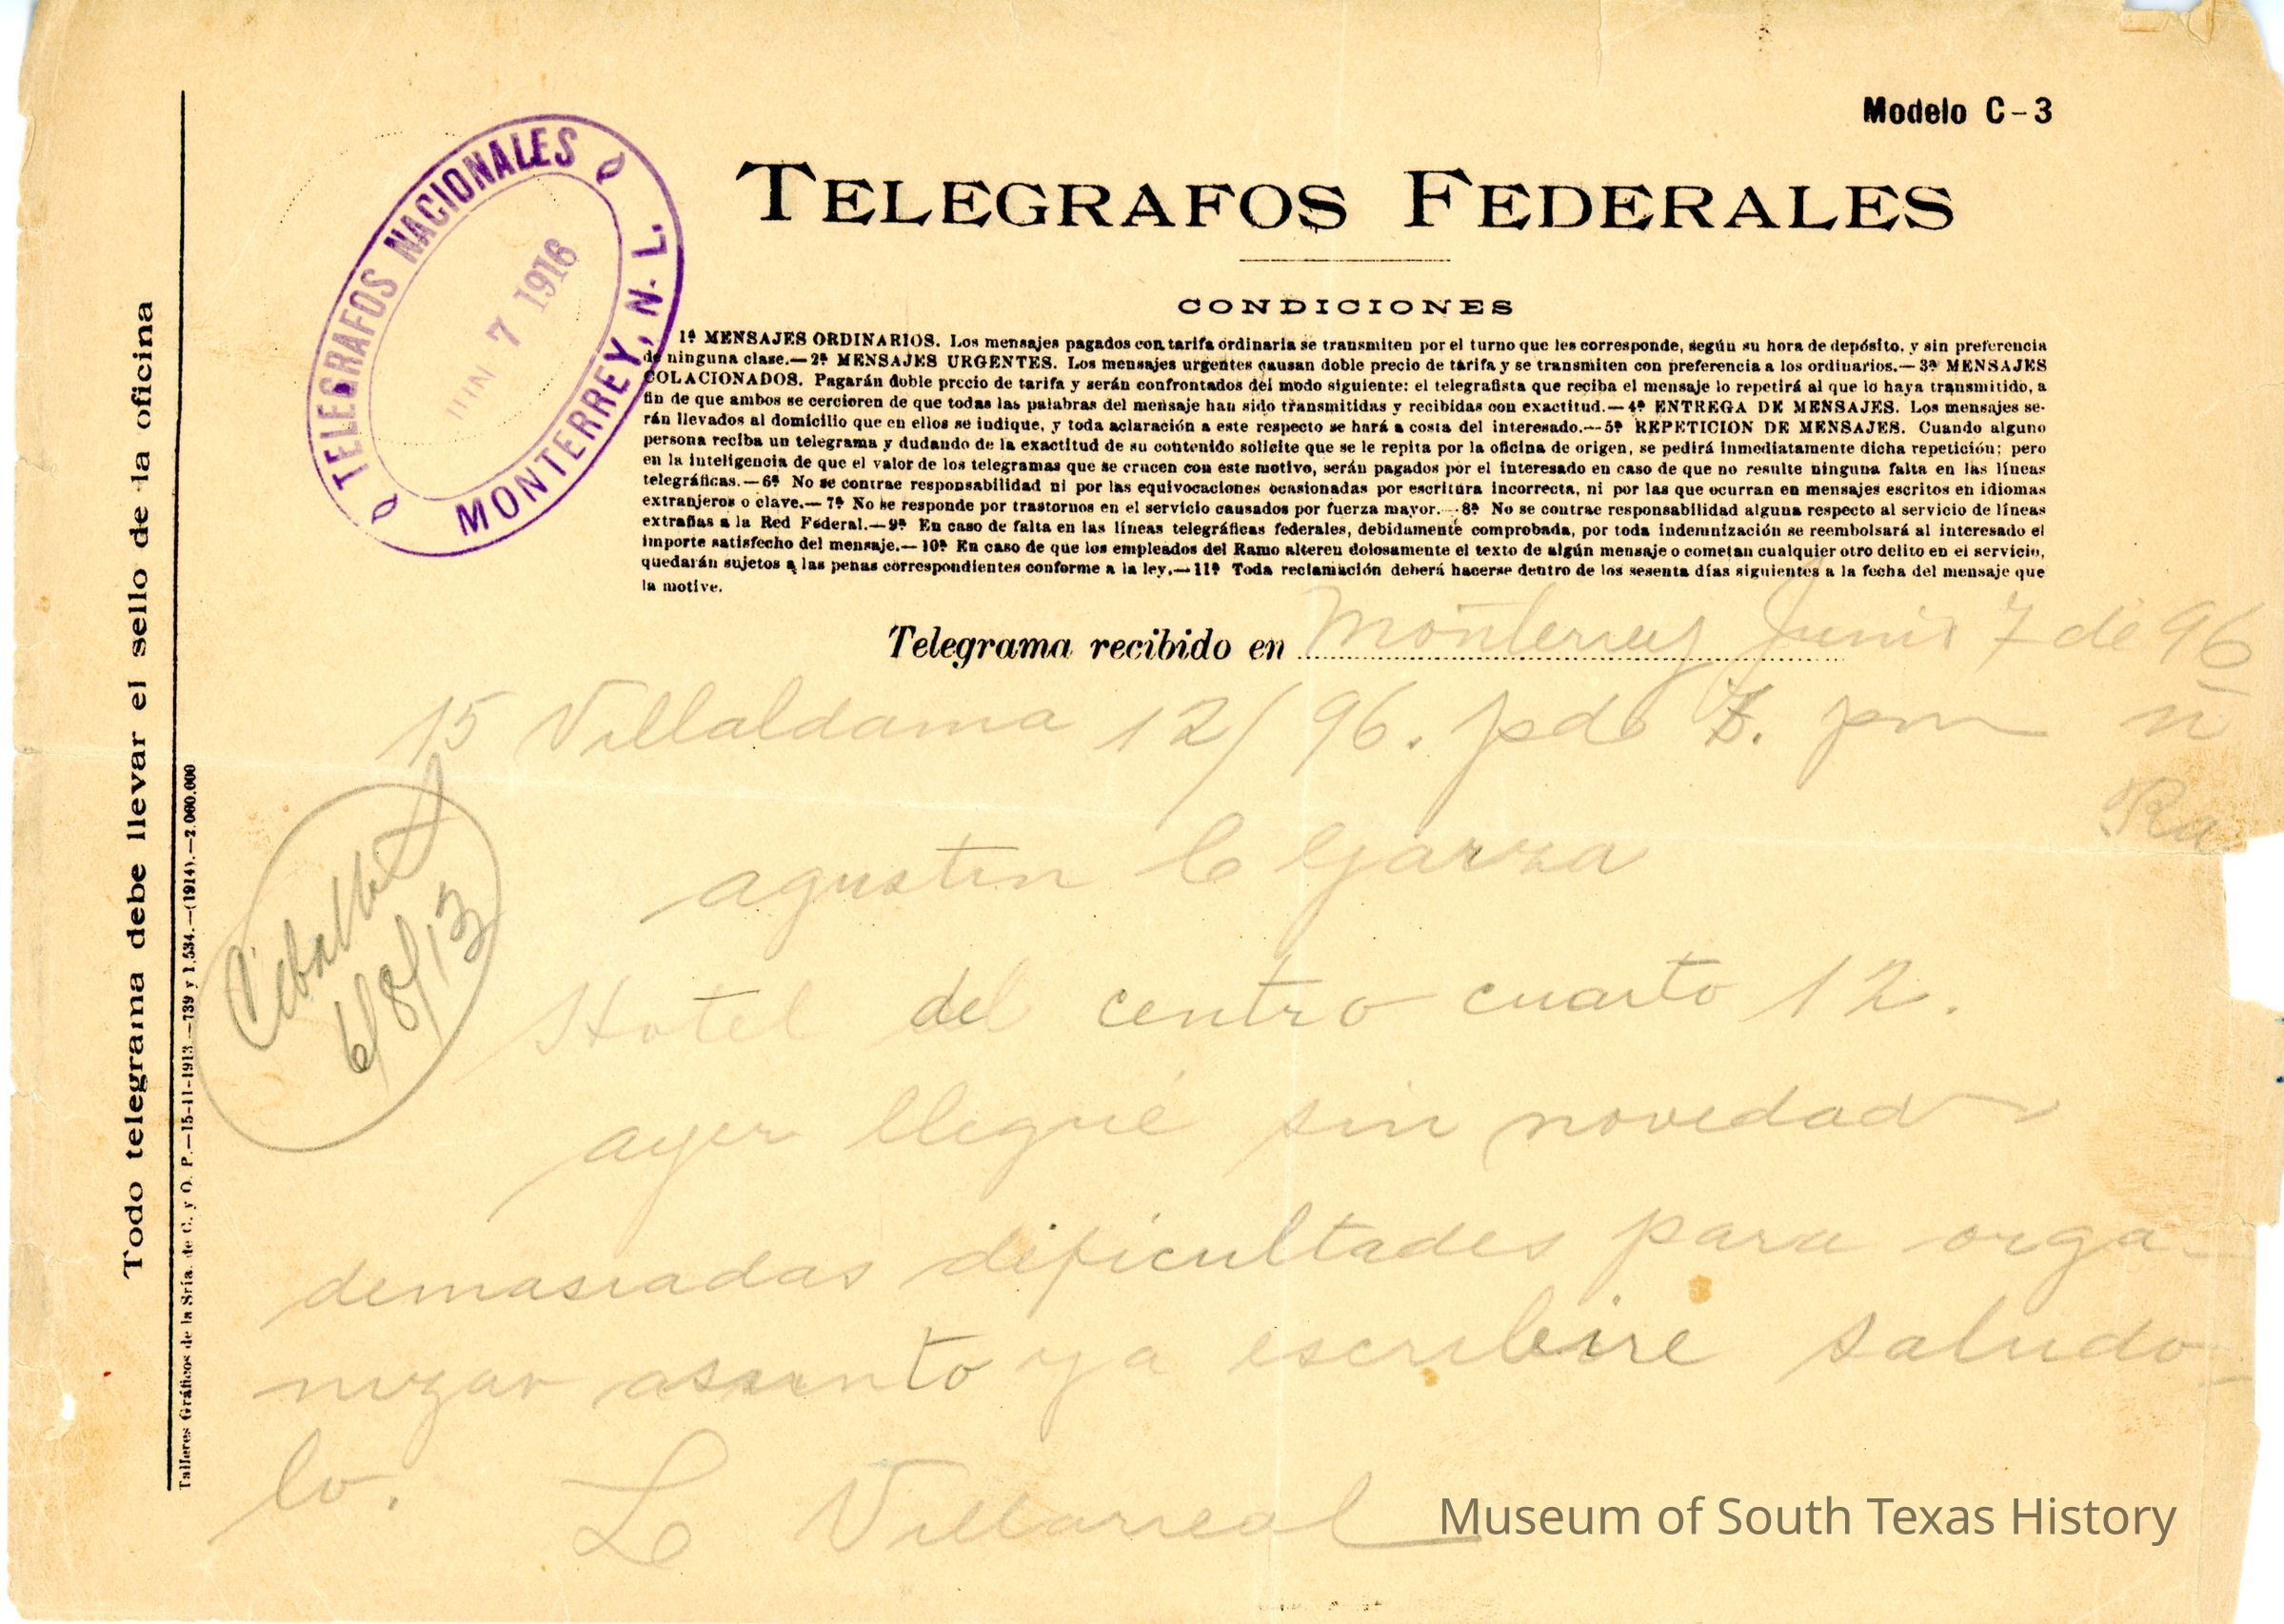 Modelo C-3
TELEGRAFOS FEDERALES
CONDICIONES
1ª MENSAJES ORDINARIOS. Los mensajes pagados con tarifa ordinaria se transmiten por el turno que les corresponde, según su hora de depósito, y sin preferencia
de ninguna clase.—2ª MENSAJES URGENTES. Los mensajes urgentes causan doble precio de tarifa y se transmiten con preferencia a los ordinarios.—3ª MENSAJES
COLACIONADOS. Pagarán doble precio de tarifa y serán confrontados del modo siguiente: el telegrafista que reciba el mensaje lo repetirá al que lo haya transmitido, a
fin de que ambos se cercioren de que todas las palabras del mensaje han sido transmitidas y recibidas con exactitud.—4ª ENTREGA DE MENSAJES. Los mensajes se-
rán llevados al domicilio que en ellos se indique, y toda aclaración a este respecto se hará a costa del interesado.—5ª REPETICION DE MENSAJES. Cuando alguno
persona reciba un telegrama y dudando de la exactitud de su contenido solicite que se le repita por la oficina de origen, se pedirá inmediatamente dicha repetición; pero
en la inteligencia de que el valor de los telegramas que se crucen con este motivo, serán pagados por el interesado en caso de que no resulte ninguna falta en las líneas
telegráficas.—6ª No se contrae responsabilidad ni por las equivocaciones ocasionadas por escritura incorrecta, ni por las que ocurran en mensajes escritos en idiomas
extranjeros o clave.—7ª No se responde por trastornos en el servicio causados por fuerza mayor.—8ª No se contrae responsabilidad alguna respecto al servicio de líneas
extrañas a la Red Federal.—9ª En caso de falta en las líneas telegráficas federales, debidamente comprobada, por toda indemnización se reembolsará al interesado el
importe satisfecho del mensaje.—10ª En caso de que los empleados del Ramo alteren dolosamente el texto de algún mensaje o cometan cualquier otro delito en el servicio,
quedarán sujetos a las penas correspondientes conforme a la ley.—11ª Toda reclamación deberá hacerse dentro de los sesenta días siguientes a la fecha del mensaje que
la motive.
TELEGRAFOS NACIONALES
JUN 7 1916
MONTERREY, N. L.
Telegrama recibido en Monterrey Junio 7 de 96
15 Villaldama 12/96. pdo 7. pm n
agustin C Garza
Hotel del centro cuarto 12.
ayer llegué sin novedad
demasiadas dificultades para orga-
nizar asunto ya escribire saludo-
lo. L Villarreal
6/8/13
Todo telegrama debe llevar el sello de la oficina
Talleres Gráficos de la Sría. de C. y O. P.—15-11-1913.—739 y 1,534.—(1914).—2.060.000
Museum of South Texas History